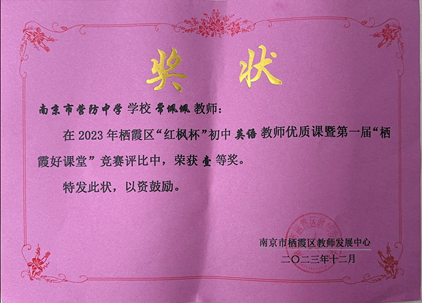 奖状
南京市营防中学 学校 常佩佩 教师：
在 2023 年栖霞区“红枫杯”初中 英语 教师优质课暨第一届“栖
霞好课堂” 竞赛评比中，荣获 壹 等奖。
特发此状，以资鼓励。
南京市栖霞区教师发展中心
二〇二三年十二月